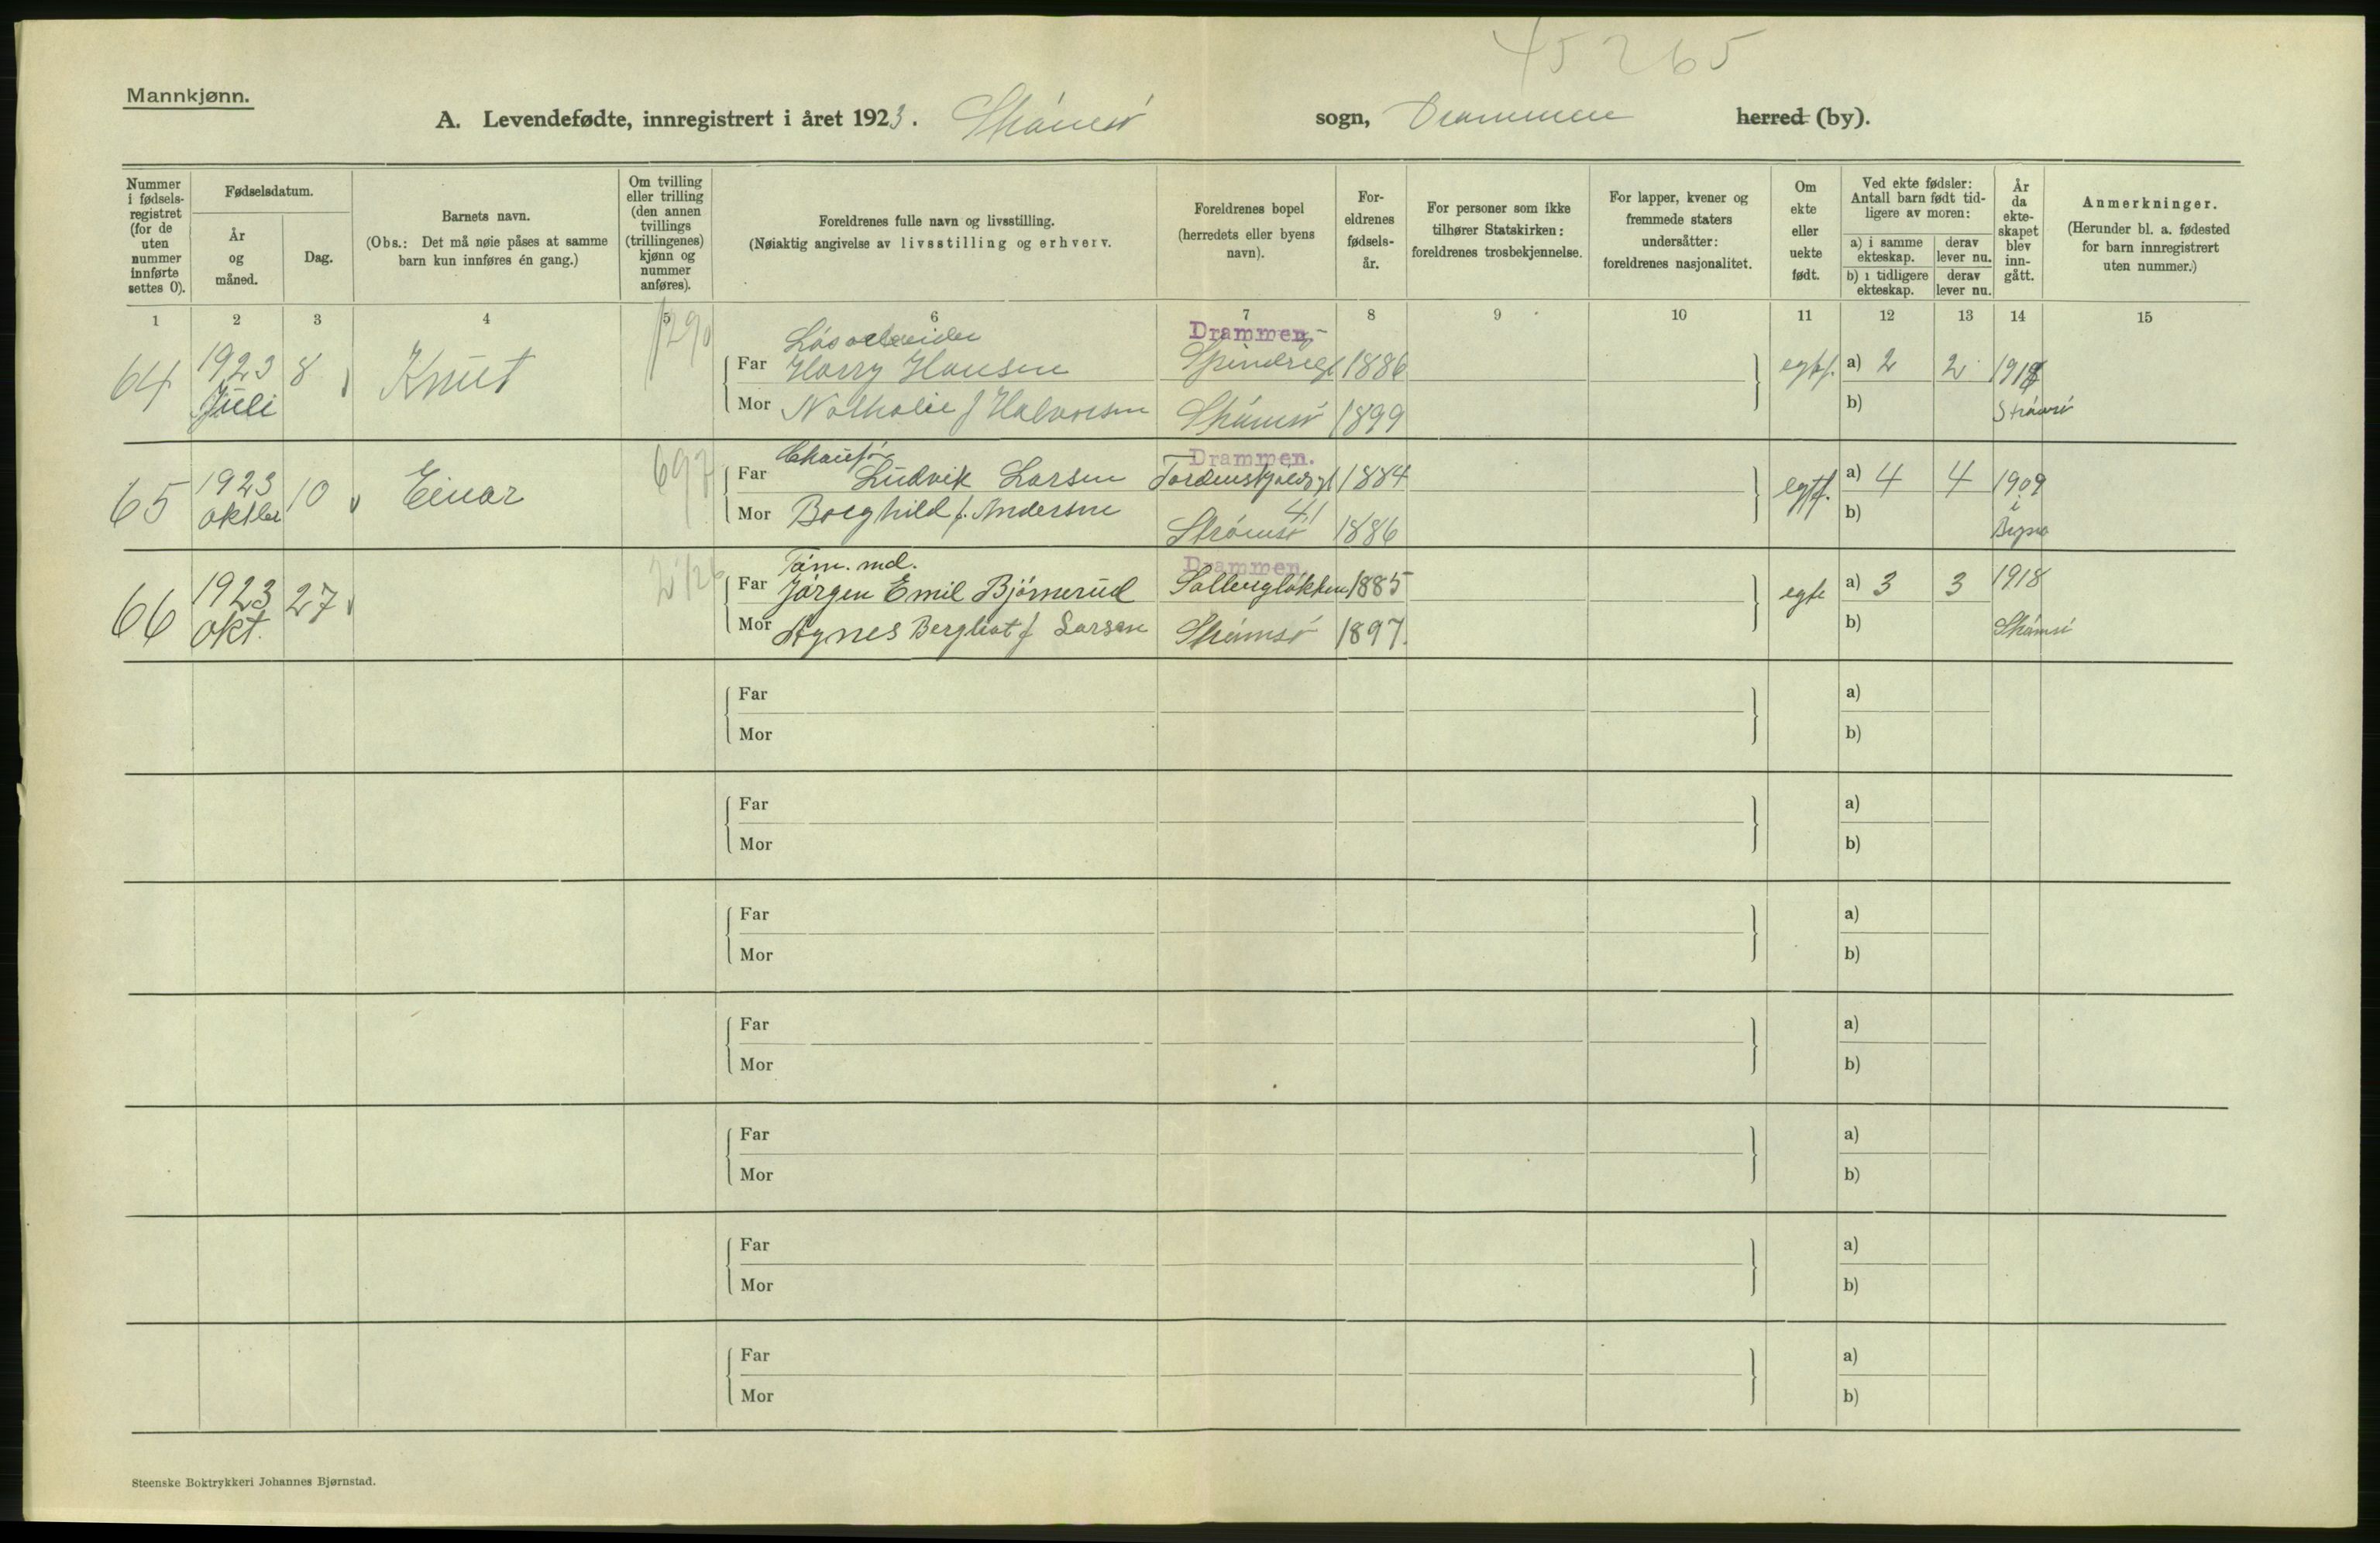 45265
Mannkjønn.
A. Levendefødte, innregistrert i året 1923. Strømsø sogn, Drammen herred (by).
Nummer i fødselsregistret (for de uten nummer innførte settes 0).
Fødselsdatum.
År og måned.
Dag.
Barnets navn.
(Obs.: Det må nøie påses at samme barn kun innføres én gang.)
Om tvilling eller trilling (den annen tvillings (trillingenes) kjønn og nummer anføres).
Foreldrenes fulle navn og livsstilling.
(Nøiaktig angivelse av livsstilling og erhverv.
Foreldrenes bopel (herredets eller byens navn).
Foreldrenes fødselsår.
For personer som ikke tilhører Statskirken: foreldrenes trosbekjennelse.
For lapper, kvener og fremmede staters undersåtter: foreldrenes nasjonalitet.
Om ekte eller uekte født.
Ved ekte fødsler: Antall barn født tidligere av moren:
a) i samme ekteskap.
derav lever nu.
b) i tidligere ekteskap.
derav lever nu.
År da ekteskapet blev inngått.
Anmerkninger.
(Herunder bl. a. fødested for barn innregistrert uten nummer.)
1 2 3 4 5 6 7 8 9 10 11 12 13 14 15
1290
Løsarbeider
Drammen,
64 1923 Juli 8 Knut
Far Harry Hansen 1886 a) 2 2 1918
Mor Nathalie f Halvorsen Strømsø 1899 b) Strømsø
697
Chauffør
Drammen.
65 1923 oktber 10 Einar
Far Ludvik Larsen Tordenskjoldsgt 1884 egtf. a) 4 4 1909
41
Mor Borghild f. Andersen Strømsø 1886 b) i
Drammen.
66 1923 okt. 27
Far Jørgen Emil Bjørnerud 1885 egte a) 3 3 1918
Mor Agnes f Larsen Strømsø 1897. b) Strømsø
Far a)
Mor b)
Far a)
Mor b)
Far a)
Mor b)
Far a)
Mor b)
Far a)
Mor b)
Far a)
Mor b)
Far a)
Mor b)
Steenske Boktrykkeri Johannes Bjørnstad.